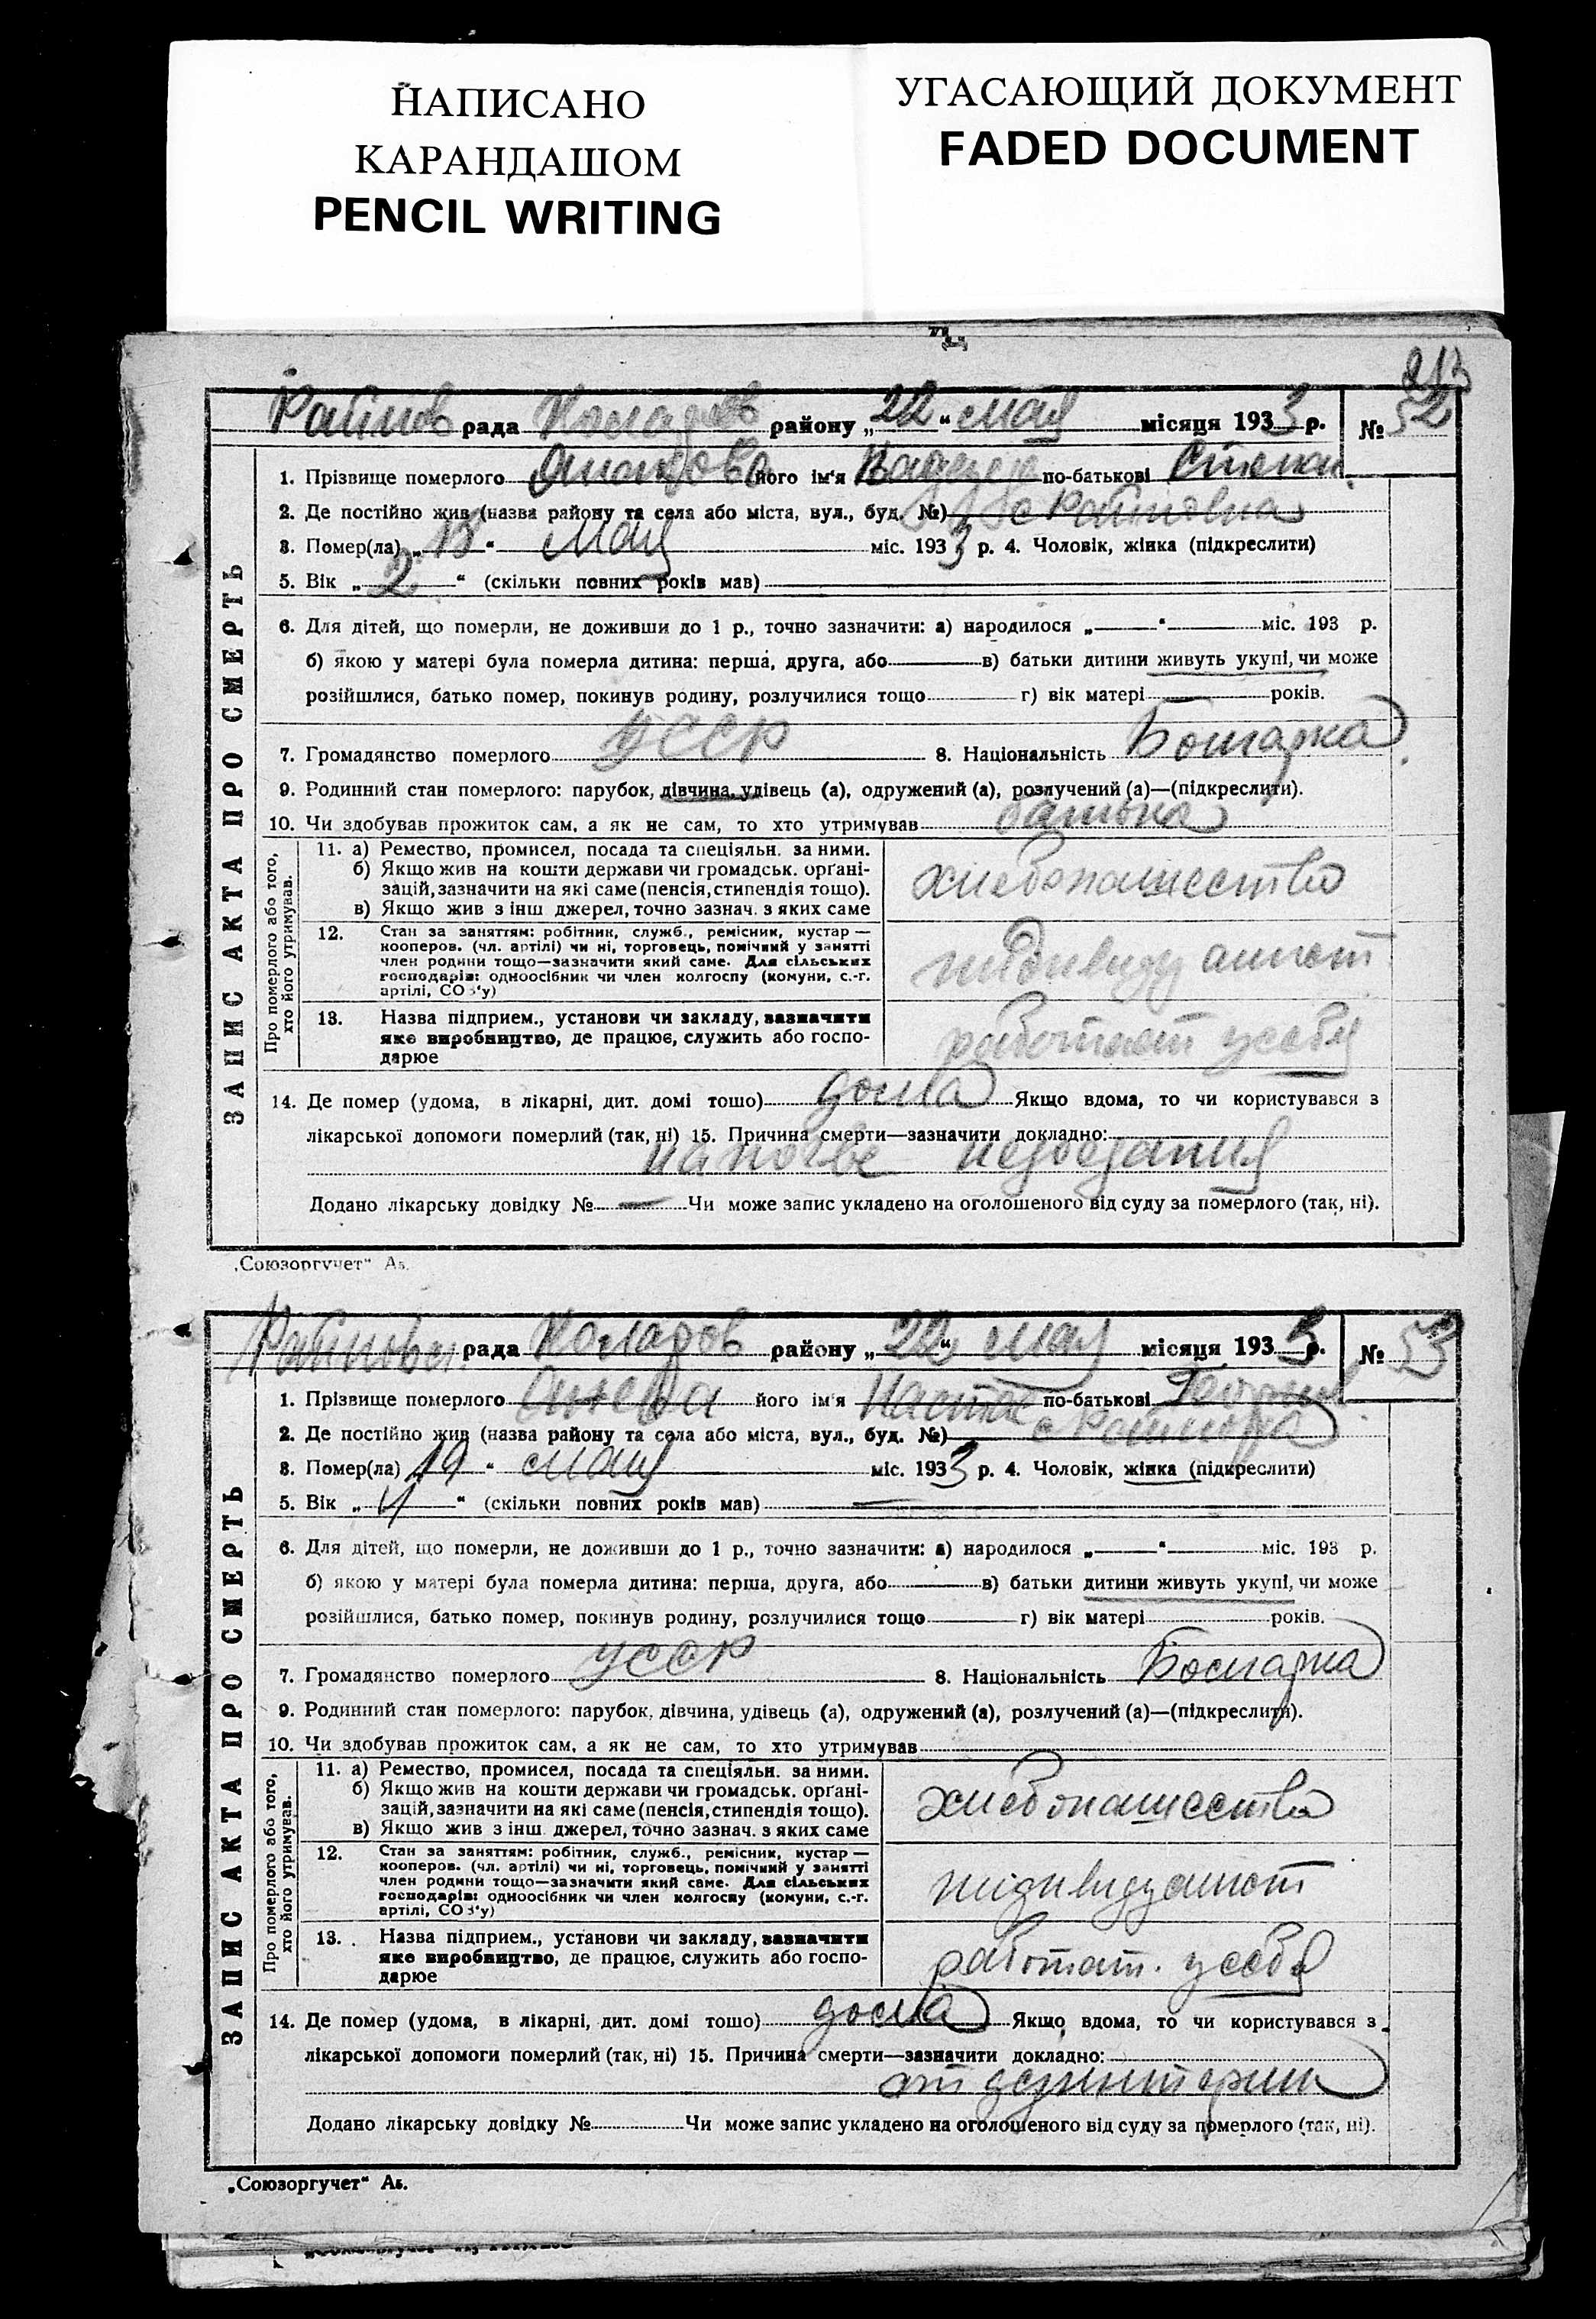 НАПИСАНО
КАРАНДАШОМ
PENCIL WRITING
УГАСАЮЩИЙ ДОКУМЕНТ
FADED DOCUMENT
213
рада Коларов району „22" мая місяця 1933 р. № 52
1. Прізвище померлого його ім'я Надежда по-батькові Степан
2. Де постійно жив (назва району та села або міста, вул., буд. №) с Райновка
3. Помер(ла) „18" мая міс. 1933 р. 4. Чоловік, жінка (підкреслити)
5. Вік „2" (скільки повних років мав)
6. Для дітей, що померли, не доживши до 1 р., точно зазначити: а) народилося „—"— міс. 193 р.
б) якою у матері була померла дитина: перша, друга, або — в) батьки дитини живуть укупі, чи може
розійшлися, батько помер, покинув родину, розлучилися тощо — г) вік матері — років.
7. Громадянство померлого УССР 8. Національність Болгарка
9. Родинний стан померлого: парубок, дівчина, удівець (а), одружений (а), розлучений (а)—(підкреслити).
10. Чи здобував прожиток сам, а як не сам, то хто утримував батька
ЗАПИС АКТА ПРО СМЕРТЬ
Про померлого або того, хто його утримував.
11. а) Ремество, промисел, посада та спеціяльн. за ними.
б) Якщо жив на кошти держави чи громадськ. орґані-
зацій, зазначити на які саме (пенсія, стипендія тощо).
в) Якщо жив з інш джерел, точно зазнач. з яких саме
хлебопашество
12. Стан за заняттям: робітник, служб., ремісник, кустар —
кооперов. (чл. артілі) чи ні, торговець, помічний у занятті
член родини тощо—зазначити який саме. Для сільських
господарів: одноосібник чи член колгоспу (комуни, с.-г.
артілі, СОЗ'у)
индивидуалист
13. Назва підприєм., установи чи закладу, зазначити
яке виробництво, де працює, служить або госпо-
дарює
работает у себя
14. Де помер (удома, в лікарні, дит. домі тошо) дома Якщо вдома, то чи користувався з
лікарської допомоги померлий (так, ні) 15. Причина смерти—зазначити докладно:
на почве недоедания
Додано лікарську довідку № — Чи може запис укладено на оголошеного від суду за померлого (так, ні).
„Союзоргучет" Аз.
рада Коларов району „22" мая місяця 1933 р. № 53
1. Прізвище померлого його ім'я по-батькові
2. Де постійно жив (назва району та села або міста, вул., буд. №) с Райновка
3. Помер(ла) „19" мая міс. 1933 р. 4. Чоловік, жінка (підкреслити)
5. Вік „4" (скільки повних років мав) —
6. Для дітей, що померли, не доживши до 1 р., точно зазначити: а) народилося „—"— міс. 193 р.
б) якою у матері була померла дитина: перша, друга, або — в) батьки дитини живуть укупі, чи може
розійшлися, батько помер, покинув родину, розлучилися тощо — г) вік матері років.
7. Громадянство померлого УССР 8. Національність Болгарка
9. Родинний стан померлого: парубок, дівчина, удівець (а), одружений (а), розлучений (а)—(підкреслити).
10. Чи здобував прожиток сам, а як не сам, то хто утримував
ЗАПИС АКТА ПРО СМЕРТЬ
Про померлого або того, хто його утримував.
11. а) Ремество, промисел, посада та спеціяльн. за ними.
б) Якщо жив на кошти держави чи громадськ. орґані-
зацій, зазначити на які саме (пенсія, стипендія тощо).
в) Якщо жив з інш джерел, точно зазнач. з яких саме
хлебопашество
12. Стан за заняттям: робітник, служб., ремісник, кустар —
кооперов. (чл. артілі) чи ні, торговець, помічний у занятті
член родини тощо—зазначити який саме. Для сільських
господарів: одноосібник чи член колгоспу (комуни, с.-г.
артілі, СОЗ'у)
индивидуалист
13. Назва підприєм., установи чи закладу, зазначити
яке виробництво, де працює, служить або госпо-
дарює
работат. у себя
14. Де помер (удома, в лікарні, дит. домі тошо) дома Якщо вдома, то чи користувався з
лікарської допомоги померлий (так, ні) 15. Причина смерти—зазначити докладно:
от дезинтерии
Додано лікарську довідку № Чи може запис укладено на оголошеного від суду за померлого (так, ні).
„Союзоргучет" Аз.